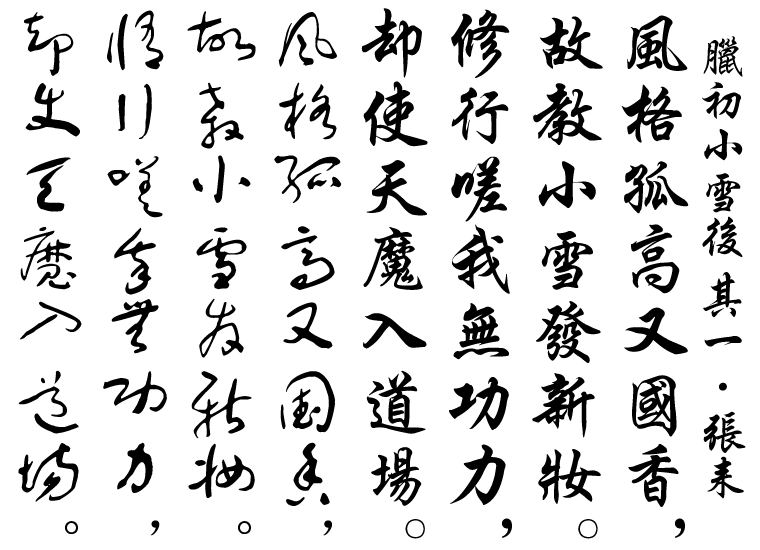 臘初小雪後 其一・張耒
風格孤高又國香，
故教小雪發新妝。
修行嗟我無功力，
却使天魔入道場。
風格孤高又國香，
故教小雪發新妝。
修行嗟我無功力，
却使天魔入道場。